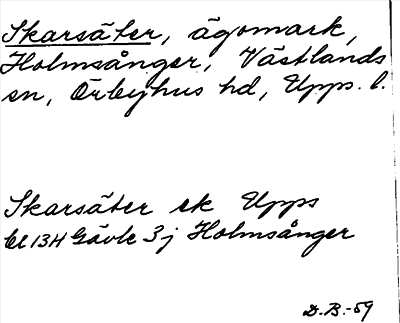 Skarsäter, ägomark,
Holmsånger, Västlands
sn, Örbyhus hd, Upps. l.
Skarsäter ek Upps
bl 13H Gävle 3j Holmsånger
D.B.-59